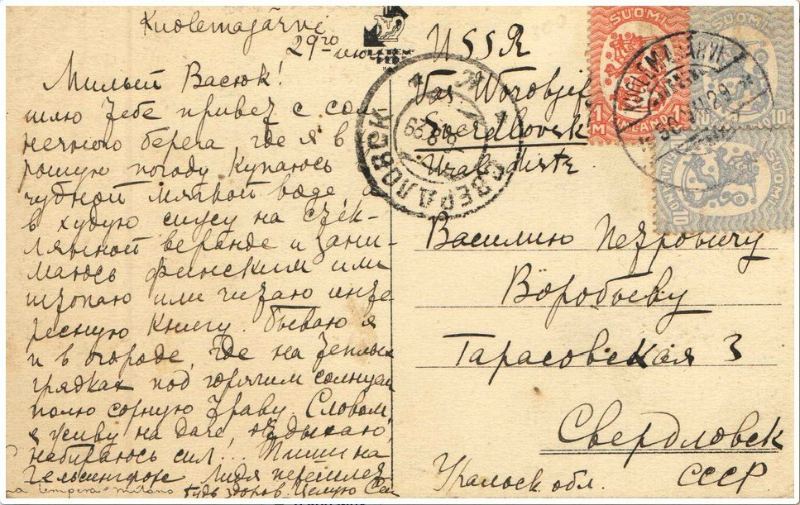 Kuolemajärvi
29го июля
Милый Васюк!
шлю тебе привет с сол
нечного берега, где я в хо
рошую погоду купаюсь
чудной мягкой воде а
в худую сижу на стек-
лянной веранде и зани-
маюсь финским или
штопаю или читаю инте
ресную книгу. Бываю я
и в огороде, где на теплых
грядках под горячим солнцем
полю сорную траву. Словом
я живу на даче, отдыхаю,
набираюсь сил... Пиши на
Гельсингфорс Лидя перешлет
Будь здоров. Целую
USSR
Was Worobjef
Sverdlovsk
Василию Петровичу
Воробьеву
Тарасовская 3
Свердловск
Уральск обл. СССР
СВЕРДЛОВСК
SUOMI
1 M
FINLAND
KUOLEMAJÄRVI
SUOMI
10
SUOMI
10